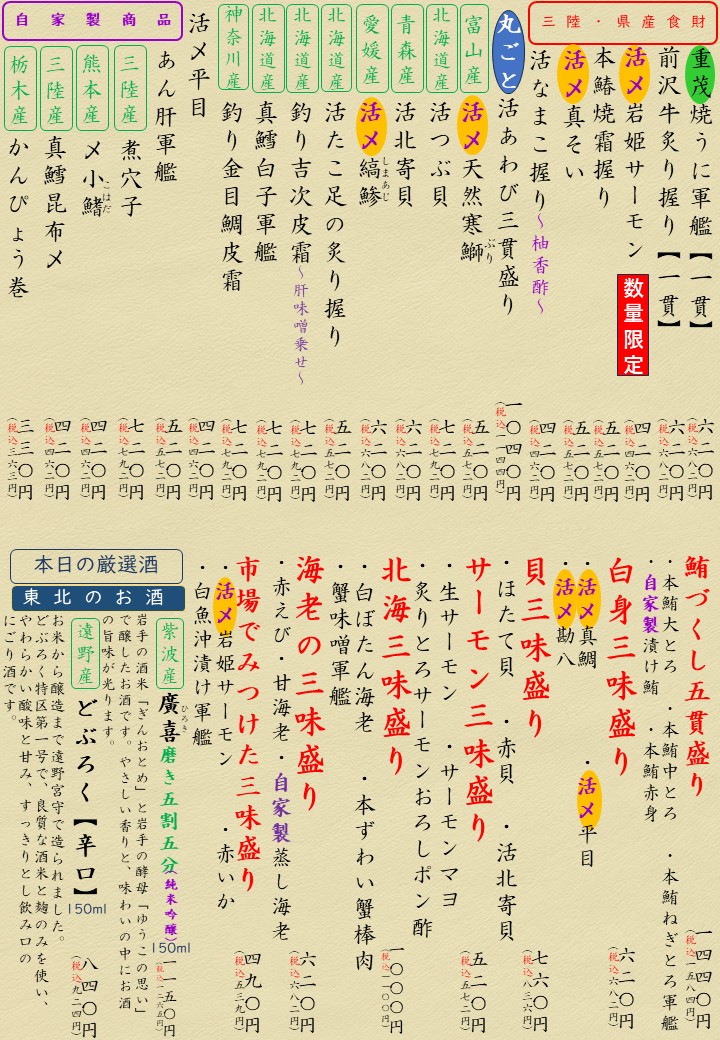 三陸・県産食財
重茂焼うに軍艦【一貫】 六二〇円 (税込六八二円)
前沢牛炙り握り【一貫】 六二〇円 (税込六八二円)
活〆岩姫サーモン 数量限定 四二〇円 (税込四六二円)
本鰆焼霜握り 五二〇円 (税込五七二円)
活〆真そい 五二〇円 (税込五七二円)
活なまこ握り～柚香酢～ 四二〇円 (税込四六二円)
丸ごと 活あわび三貫盛り 一〇四〇円 (税込一一四四円)
富山産 活〆天然寒鰤 ぶり 五二〇円 (税込五七二円)
北海道産 活つぶ貝 七二〇円 (税込七九二円)
青森産 活北寄貝 六二〇円 (税込六八二円)
愛媛産 活〆縞鯵 しまあじ 六二〇円 (税込六八二円)
北海道産 活たこ足の炙り握り 五二〇円 (税込五七二円)
北海道産 釣り吉次皮霜～肝味噌乗せ～ 七二〇円 (税込七九二円)
北海道産 真鱈白子軍艦 七二〇円 (税込七九二円)
神奈川産 釣り金目鯛皮霜 七二〇円 (税込七九二円)
活〆平目 四二〇円 (税込四六二円)
自家製商品
あん肝軍艦 五二〇円 (税込五七二円)
三陸産 煮穴子 七二〇円 (税込七九二円)
熊本産 〆小鰭 こはだ 四二〇円 (税込四六二円)
三陸産 真鱈昆布〆 四二〇円 (税込四六二円)
栃木産 かんぴょう巻 三三〇円 (税込三六三円)
鮪づくし五貫盛り 一四四〇円 (税込一五八四円)
・本鮪大とろ ・本鮪中とろ ・本鮪ねぎとろ軍艦
・自家製漬け鮪 ・本鮪赤身
白身三味盛り 六二〇円 (税込六八二円)
・活〆真鯛 ・活〆平目
・活〆勘八
貝三味盛り 七六〇円 (税込八三六円)
・ほたて貝 ・赤貝 ・活北寄貝
サーモン三味盛り 五二〇円 (税込五七二円)
・生サーモン ・サーモンマヨ
・炙りとろサーモンおろしポン酢
北海三味盛り 一〇〇〇円 (税込一一〇〇円)
・白ぼたん海老 ・本ずわい蟹棒肉
・蟹味噌軍艦
海老の三味盛り 六二〇円 (税込六八二円)
・赤えび・甘海老・自家製蒸し海老
市場でみつけた三味盛り 四九〇円 (税込五三九円)
・活〆岩姫サーモン ・赤いか
・白魚沖漬け軍艦
本日の厳選酒
東北のお酒
紫波産 廣喜 ひろき 磨き五割五分(純米吟醸) 150ml 一一五〇円 (税込一二六五円)
岩手の酒米「ぎんおとめ」と岩手の酵母「ゆうこの思い」
で醸したお酒です。やさしい香りと、味わいの中にお酒
の旨味が光ります。
遠野産 どぶろく【辛口】 150ml 八四〇円 (税込九二四円)
お米から醸造まで遠野宮守で造られました。
どぶろく特区第一号で、良質な酒米と麹のみを使い、
やわらかい酸味と甘み、すっきりとし飲み口の
にごり酒です。